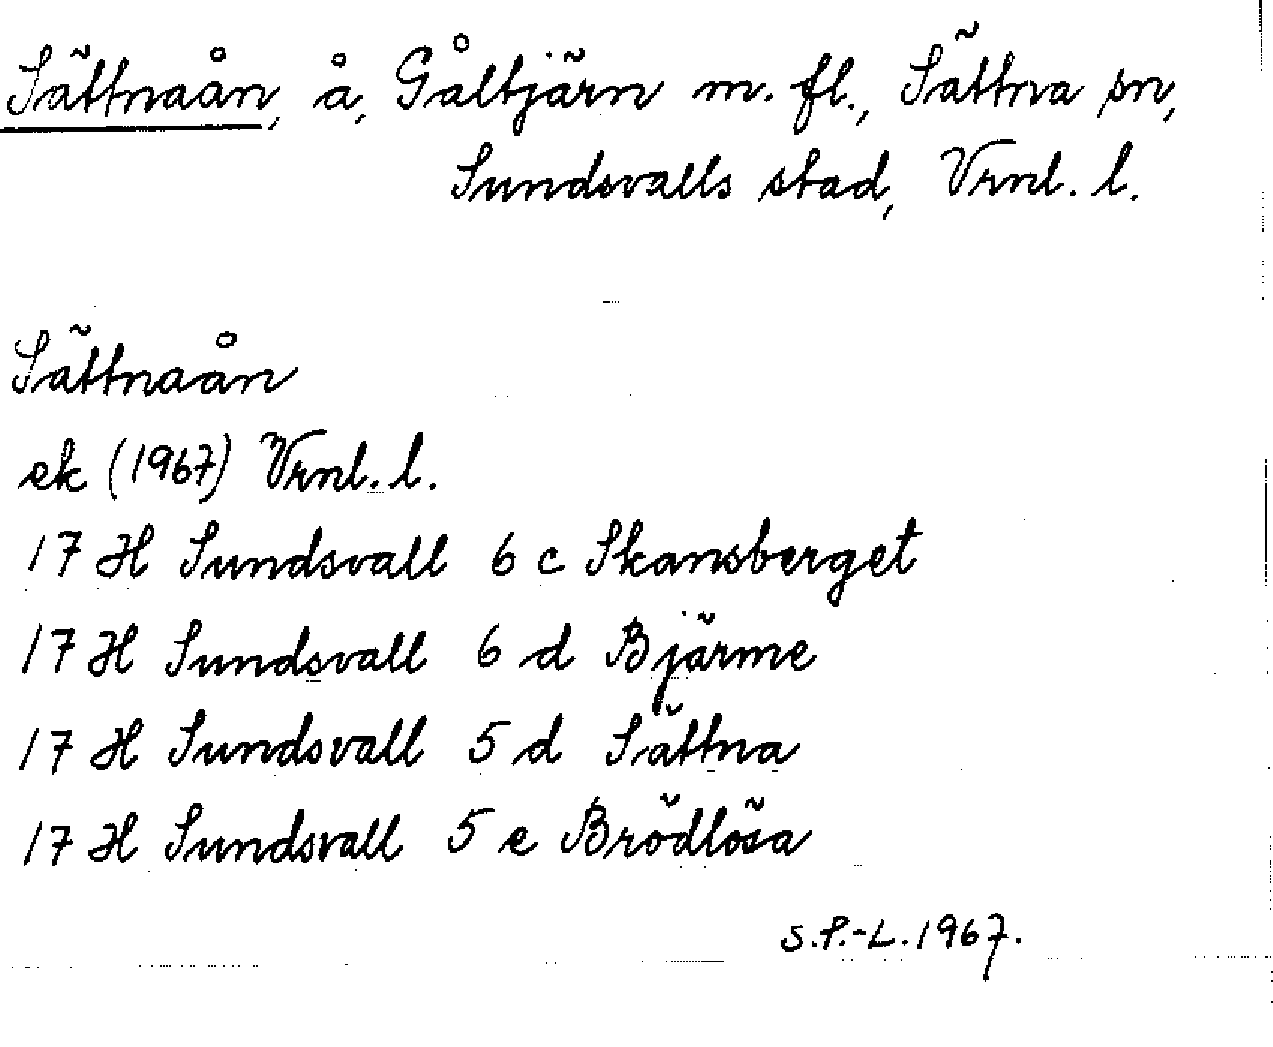 Sättnaån, å, Gåltjärn m. fl., Sättna sn,
Sundsvalls stad, Vrnl. l.
Sättnaån
ek (1967) Vrnl. l.
17 H Sundsvall 6 c Skansberget
17 H Sundsvall 6 d Bjärme
17 H Sundsvall 5 d Sättna
17 H Sundsvall 5 e Brödlösa
S.P.-L. 1967.